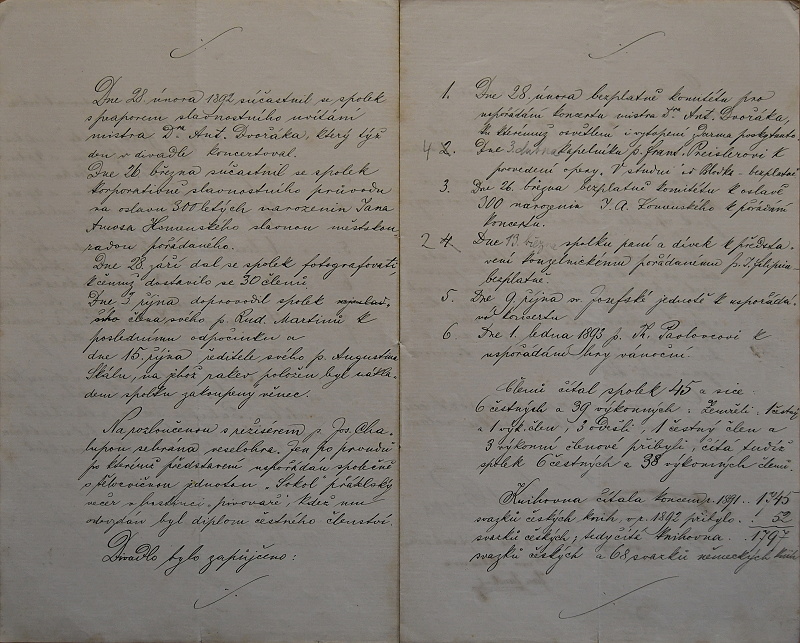 Dne 28. února 1892 súčastnil se spolek
s praporem slavnostního uvítání
mistra Dra Ant. Dvořáka, který týž
den v divadle koncertoval.
Dne 26. března súčastnil se spolek
korporativně slavnostního průvodu
na oslavu 300letých narozenin Jana
Amosa Komenského slavnou městskou
radou pořádaného.
Dne 28. září dal se spolek fotografovati
k čemuž dostavilo se 30 členů.
Dne 3 října doprovodil spolek
člena svého p. Rud. Martinů k
poslednímu odpočinku a
dne 15. října ředitele svého p. Augustina
Škálu, na jehož rakev položen byl nákla-
dem spolku zakoupený věnec.
Na rozloučenou s režisérem p. Jos. Cha-
lupou sehrána veselohra: Jen po proudu
po kterémž představení uspořádán společně
s tělocvičnou jednotou "Sokol" přátelský
večer v hostinci "pivováře", kdež mu
odevzdán byl diplom čestného členství.
Divadlo bylo zapůjčeno:
1. Dne 28. února bezplatně komitétu pro
uspořádání koncertu mistra Dra Ant. Dvořáka,
ku kteremuž osvětlení i vytopení zdarma poskytnuto
4 2. Dne 3. kapelníku p. Frant. Preislerovi k
provedení opery "V studni" od Blodka - bezplatně
3. Dne 26. března bezplatně komitétu k oslavě
300 narozenin J. A. Komenského k pořádání
koncertu.
2 4. Dne 13. spolku paní a dívek k předsta-
vení kouzelnickému pořádanému p. J. Filipim
bezplatně.
5. Dne 9 října sv. Josefské jednotě k uspořádá-
ní koncertu
6 Dne 1. ledna 1893 p. Th. Pavlovcovi k
uspořádání hry vánoční.
Členů čítal spolek 45 a sice
6 čestných a 39 výkonných: Zemřeli: 1 čestný
a 1 výk. člen; 1 čestný člen a
3 výkonní členové přibyli, čítá tudíž
spolek 6 čestných a 38 výkonných členů.
Knihovna čítala koncem r. 1891 .. 1745
svazků českých knih, v r. 1892 přibylo . 52
svazků českých; tedy čítá knihovna . 1797
svazků českých a 68 svazků německých knih